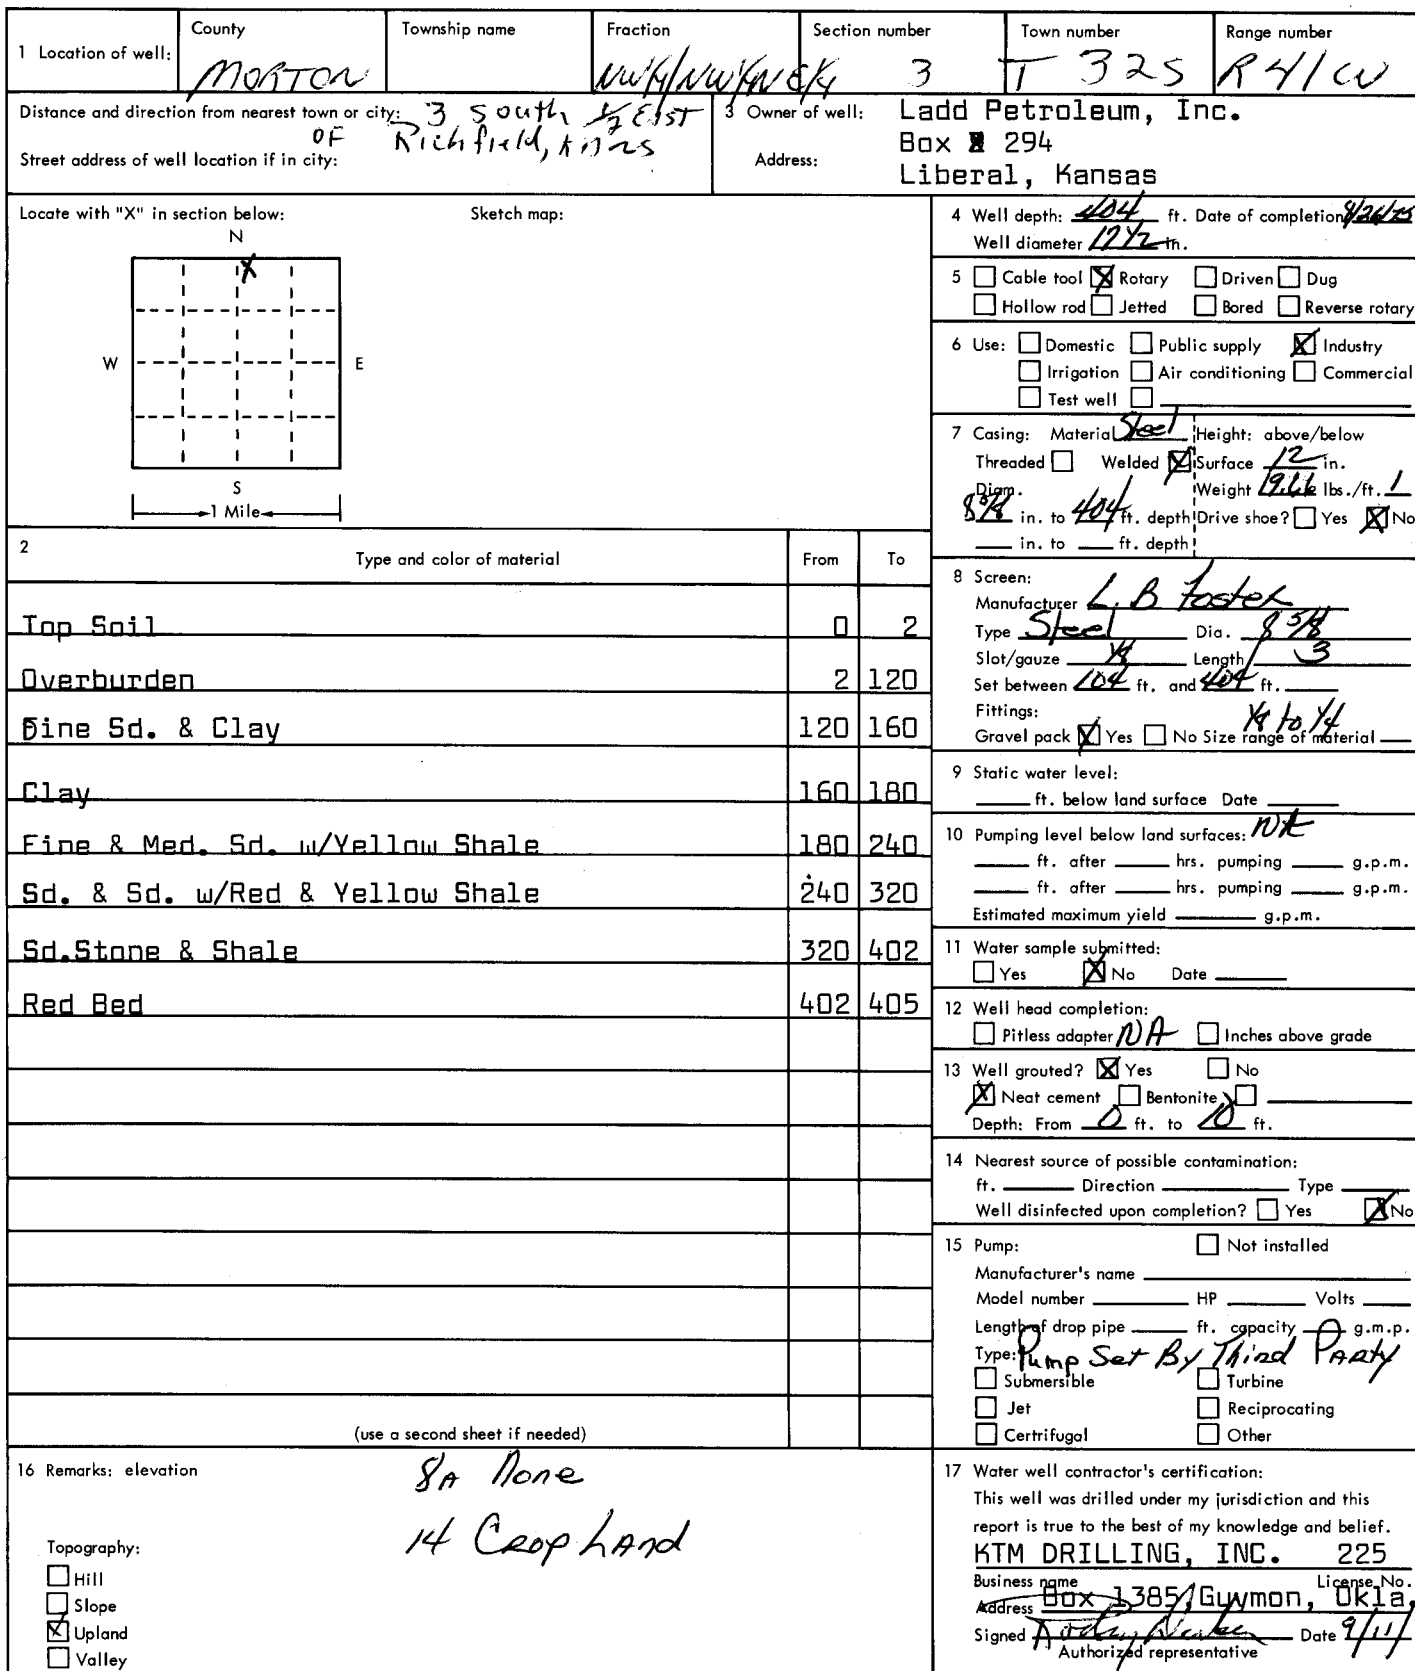 1 Location of well:
County
MORTON
Township name
Fraction
NW¼/NW¼NE¼
Section number
3
Town number
T 32S
Range number
R41W
Distance and direction from nearest town or city: 3 South ½ East
OF Richfield, Kans
Street address of well location if in city:
3 Owner of well: Ladd Petroleum, Inc.
Address: Box 294
Liberal, Kansas
Locate with "X" in section below:
Sketch map:
N
X
W
E
S
1 Mile
2
Type and color of material From To
Top Soil 0 2
Overburden 2 120
Fine Sd. & Clay 120 160
Clay 160 180
Fine & Med. Sd. w/Yellow Shale 180 240
Sd. & Sd. w/Red & Yellow Shale 240 320
Sd.Stone & Shale 320 402
Red Bed 402 405
(use a second sheet if needed)
4 Well depth: 404 ft. Date of completion 8/26/75
Well diameter 12½ in.
5 ☐ Cable tool ☒ Rotary ☐ Driven ☐ Dug
☐ Hollow rod ☐ Jetted ☐ Bored ☐ Reverse rotary
6 Use: ☐ Domestic ☐ Public supply ☒ Industry
☐ Irrigation ☐ Air conditioning ☐ Commercial
☐ Test well ☐
7 Casing: Material Steel Height: above/below
Threaded ☐ Welded ☒ Surface 12 in.
Diam. Weight 19.66 lbs./ft. 1
8 5/8 in. to 404 ft. depth Drive shoe? ☐ Yes ☒ No
in. to ft. depth
8 Screen:
Manufacturer L. B Foster
Type Steel Dia. 8 5/8
Slot/gauze ⅛ Length 3
Set between 104 ft. and 404 ft.
Fittings: ⅛ to ¼
Gravel pack ☒ Yes ☐ No Size range of material
9 Static water level:
ft. below land surface Date
10 Pumping level below land surfaces: NA
ft. after hrs. pumping g.p.m.
ft. after hrs. pumping g.p.m.
Estimated maximum yield g.p.m.
11 Water sample submitted:
☐ Yes ☒ No Date
12 Well head completion:
☐ Pitless adapter NA ☐ Inches above grade
13 Well grouted? ☒ Yes ☐ No
☒ Neat cement ☐ Bentonite ☐
Depth: From 0 ft. to 10 ft.
14 Nearest source of possible contamination:
ft. Direction Type
Well disinfected upon completion? ☐ Yes ☒ No
15 Pump: ☐ Not installed
Manufacturer's name
Model number HP Volts
Length of drop pipe ft. capacity g.m.p.
Type: Pump Set By Third Party
☐ Submersible ☐ Turbine
☐ Jet ☐ Reciprocating
☐ Certrifugal ☐ Other
16 Remarks: elevation
8A None
14 Crop Land
Topography:
☐ Hill
☐ Slope
☒ Upland
☐ Valley
17 Water well contractor's certification:
This well was drilled under my jurisdiction and this
report is true to the best of my knowledge and belief.
KTM DRILLING, INC. 225
Business name License No.
Address Box 1385, Guymon, Okla.
Signed Date 9/11/
Authorized representative